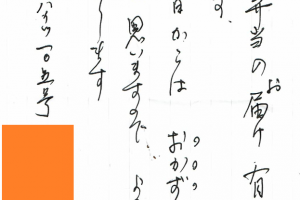 弁当のお届け 有
す。
日からは おかず
思いますので よ
します
ハイツ一〇五号